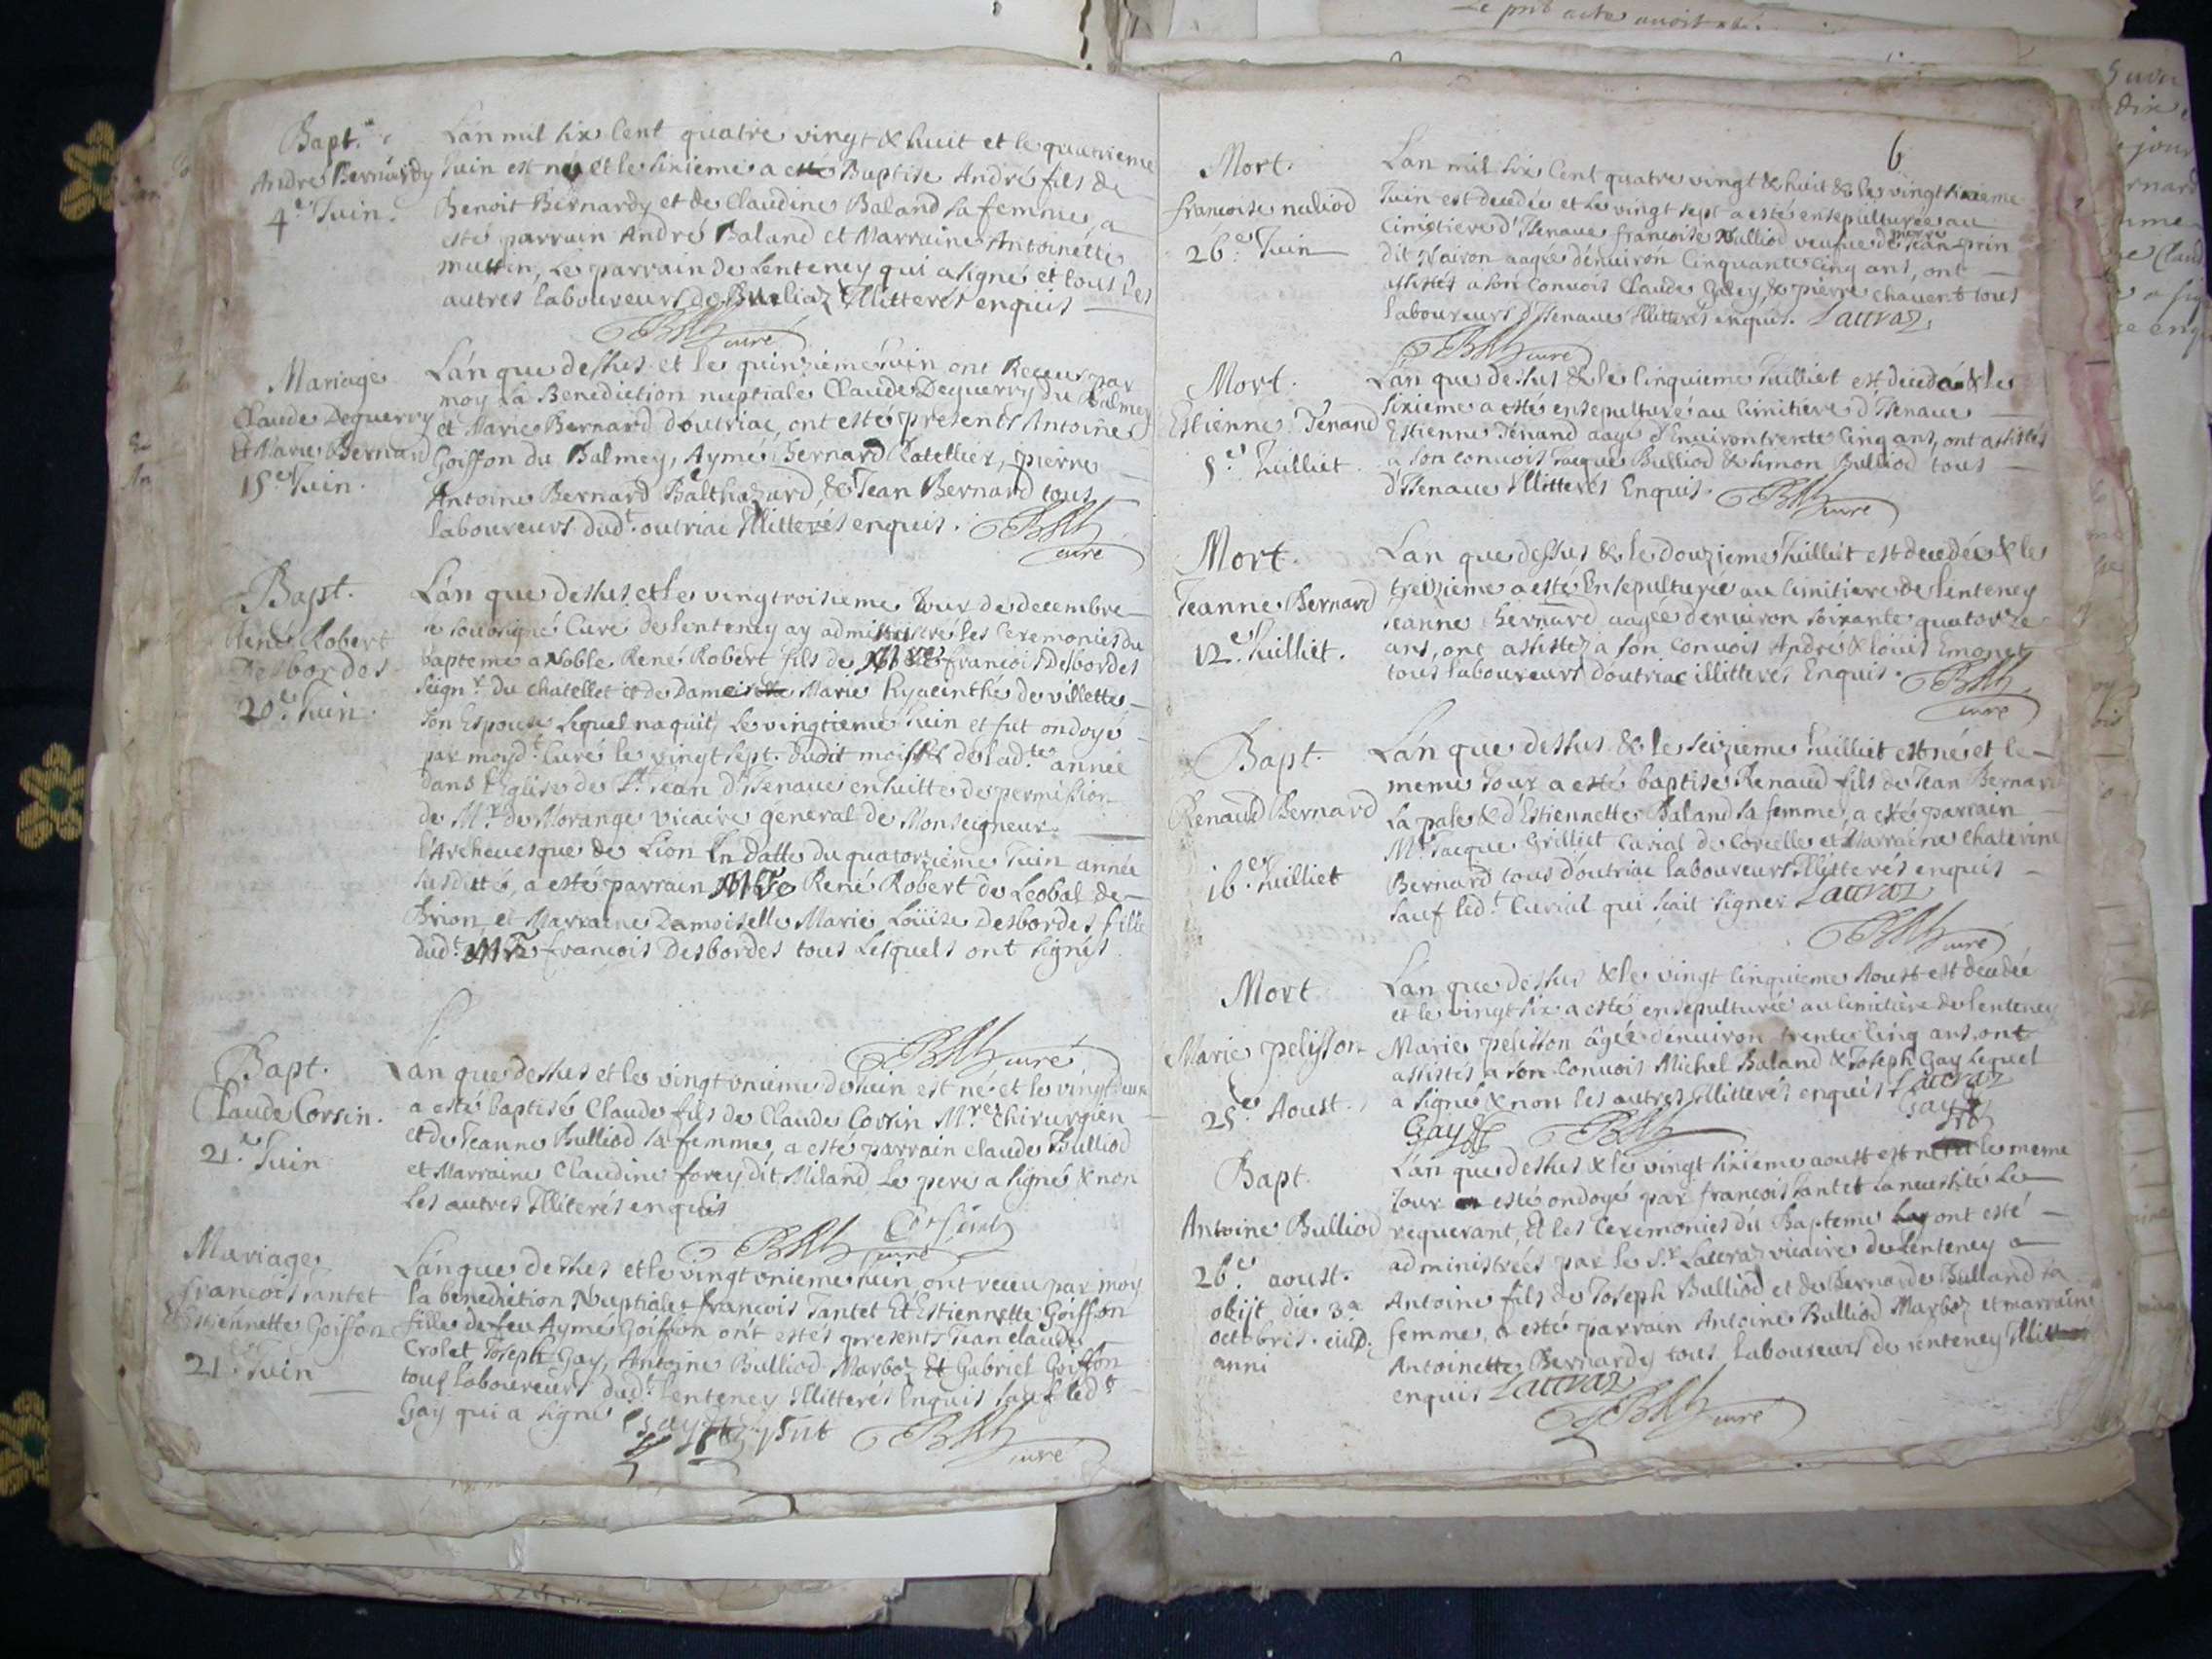 Bapt.
André Bernardy
4.e Juin.
L'an mil six Cent quatre vingt & huit et le quatrieme
Juin est né et le sixieme a esté Baptise André fils de
Benoit Bernardy et de Claudine Baland sa femme, a
esté parrain André Baland et Marraine Antoinette
le parrain de Lenteney qui a signé et tous les
autres laboureurs de Illitterés enquis
curé
Mariage
Claude Deguerry
Et Marie Bernard
15.e Juin.
L'an que dessus et le quinzieme Juin ont Receu par
moy La Benediction nuptiale Claude Deguerry du Balmey
et Marie Bernard d'outriac, ont esté presents Antoine
Goiffon du Balmey, Aymé Bernard pierre
Antoine Bernard Balthazard & Jean Bernard tous
laboureurs dud.t outriac Illitterés enquis.
curé
Bapt.
René Robert
Desbordes
20.e Juin.
L'an que dessus et le vingtroisieme Jour de decembre
je soussigné Curé de lenteney ay administré les Ceremonies du
bapteme a Noble René Robert fils de francois Desbordes
seign.r du chatellet et de Marie Hyacinthe de villette
son Espouse lequel naquit le vingtieme Juin et fut ondoyé
par moyd.t Curé le vingt sept. dudit mois & de lad.te année
dans l'Eglise de S.t Jean d'Izenave ensuitte de permission
de M.r de Morange vicaire general de Monseigneur
l'Archevesque de Lion En datte du quatorzieme Juin année
susditte, a esté parrain René Robert de Leobal de
Brion, et Marraine Damoiselle Marie Louise Desbordes fille
dud.t francois Desbordes tous Lesquels ont signés
curé
Bapt.
Claude Corsin.
21.e Juin
L'an que dessus et le vingt unieme de Juin est né et le vingt deux
a esté baptisé Claude fils de Claude Corsin M.re chirurgien
et de Jeanne Bulliod sa femme, a esté parrain claude Bulliod
et Marraine Claudine forey dit Miland Le pere a signé & non
les autres Illiterés enquis
Corsin
curé
Mariage
francois Tantet
& Estiennette Goiffon
21.e Juin
L'an que dessus et le vingt unieme Juin ont receu par moy
la benediction Nuptiale francois Tantet Et Estiennette Goiffon
fille de feu Aymé Goiffon ont estés presents Jean claude
Crolet Joseph Gay, Antoine Bulliod Marboz Et Gabriel Goiffon
tous laboureurs dud.t lenteney Illitterés Enquis sauf led.t
Gay qui a signé
Gay
curé
6
Mort.
francoise nuliod
26.e Juin
L'an mil six Cent quatre vingt & huit & le vingt sixieme
Juin est decedée et le vingt sept a esté ensepulturée au
Cimitiere d'Izenave francoise Nulliod veufve de Jean
dit aagée d'environ Cinquante Cinq ans, ont
assistés a son Convois Claude & pierre chavent tous
laboureurs d'Izenave Illitterés enquis. Lauraz
curé
Mort.
Estienne Tenand
5.e Juilliet.
L'an que dessus & le Cinquieme Juilliet est decedé & le
sixieme a esté ensepulturé au Cimitiere d'Izenave
Estienne Tenand aagé d'Environ trente Cinq ans, ont assistés
a son convois Jacque Bulliod & Simon Bulliod tous
d'Izenave Illitterés Enquis.
curé
Mort.
Jeanne Bernard
12.e Juilliet.
L'an que dessus & le douzieme Juilliet est decedée & le
treizieme a esté Ensepulturée au Cimitiere de lenteney
Jeanne Bernard aagée d'environ soixante quatorze
ans, ont assistez a son Convois André & louis Emonet
tous laboureurs d'outriac illitterés Enquis.
curé
Bapt.
Renaud Bernard
16.e Juilliet
L'an que dessus & le seizieme Juilliet est né et le
meme Jour a esté baptisé Renaud fils de Jean Bernard
La pale & d'Estiennette Baland sa femme, a esté parrain
M.re Jacque Grilliet Curial de Corcelle et Marraine Chaterine
Bernard tous d'outriac laboureurs Illitterés enquis
sauf led.t Curial qui sait signer Lauraz
curé
Mort
Marie pelisson
25.e Aoust.
L'an que dessus & le vingt Cinquieme Aoust est decedée
et le vingt six a esté ensepulturée au Cimitiere de lenteney
Marie pelisson âgée d'environ trente Cinq ans, ont
assistés a son Convois Michel Baland & Joseph Gay Lequel
a signé & non les autres Illitterés enquis Lauraz
Gay
Gay
Bapt.
Antoine Bulliod
26.e aoust.
obijt die 3.a
octobris eiusd.
anni
L'an que dessus & le vingt sixieme aoust est né le meme
Jour esté ondoyé par francois Tantet la necessité Le
requerant, Et les Ceremonies du Bapteme ont esté
administrées par le S.r Lauraz vicaire de lenteney a
Antoine fils de Joseph Bulliod et de Bernarde Bulland sa
femme, a esté parrain Antoine Bulliod Marboz et marraine
Antoinette Bernardy tous laboureurs de lenteney
enquis Lauraz
curé